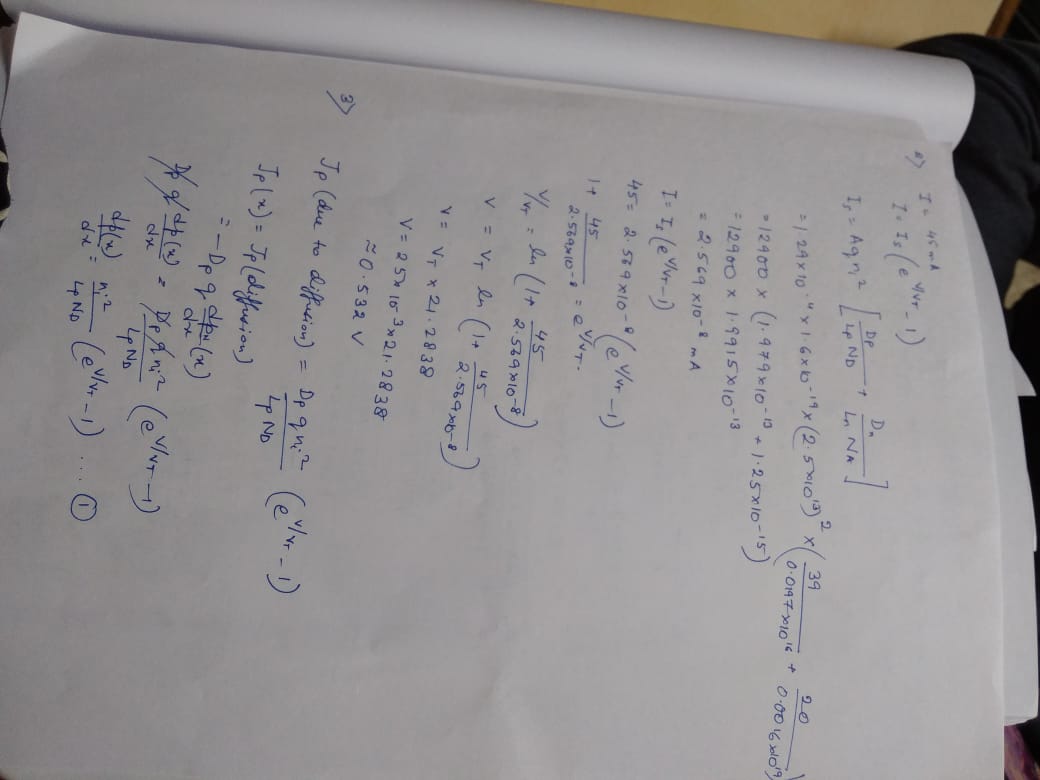 2) I = 45 mA
I = Is (e^V/VT - 1)
Is = Aqni² [Dp/LpND + Dn/LnNA]
= 1.29×10^-4 × 1.6×10^-19 × (2.5×10^13)² × (39/0.0197×10^16 + 20/0.0016×10^19)
= 12900 × (1.979×10^-13 + 1.25×10^-15)
= 12900 × 1.9915×10^-13
= 2.569×10^-8 mA
I = Is (e^V/VT - 1)
45 = 2.569×10^-8 (e^V/VT - 1)
1 + 45/2.569×10^-8 = e^V/VT.
V/VT = ln (1 + 45/2.569×10^-8)
V = VT ln (1 + 45/2.569×10^-8)
V = VT × 21.2838
V = 25×10^-3 × 21.2838
≈ 0.532 V
3) Jp (due to diffusion) = Dpqni²/LpND (e^V/VT - 1)
Jp(x) = Jp (diffusion)
= -Dp q dpn(x)/dx
Dp q dp(x)/dx = Dp q ni²/LpND (e^V/VT - 1)
dp(x)/dx = ni²/LpND (e^V/VT - 1) .... ①